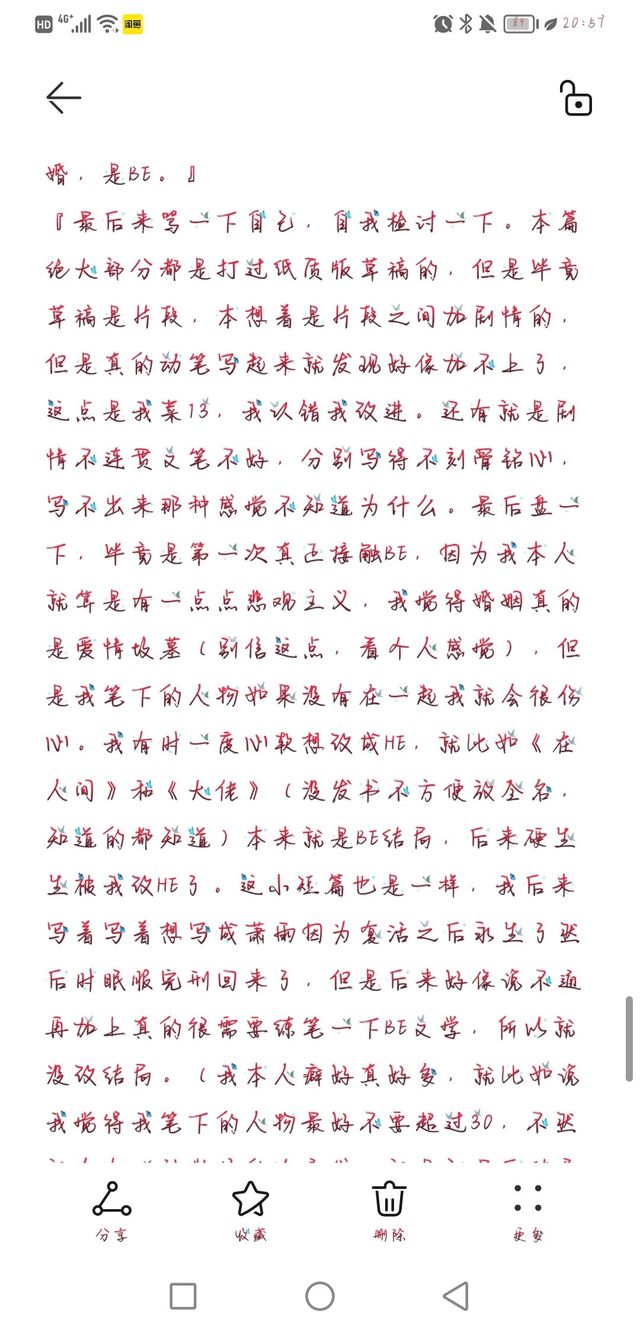 HD 4G+ 闲鱼 89 20:57
婚，是BE。』
『最后来骂一下自己，自我检讨一下。本篇
绝大部分都是打过纸质版草稿的，但是毕竟
草稿是片段，本想着是片段之间加剧情的，
但是真的动笔写起来就发现好像加不上了，
这点是我菜13，我认错我改进。还有就是剧
情不连贯文笔不好，分别写得不刻骨铭心，
写不出来那种感觉不知道为什么。最后盘一
下，毕竟是第一次真正接触BE，因为我本人
就算是有一点点悲观主义，我觉得婚姻真的
是爱情坟墓（别信这点，看个人感觉），但
是我笔下的人物如果没有在一起我就会很伤
心。我有时一度心软想改成HE，就比如《在
人间》和《大佬》（没发书不方便放全名，
知道的都知道）本来就是BE结局，后来硬生
生被我改HE了。这小短篇也是一样，我后来
写着写着想写成萧雨因为复活之后永生了然
后时眠服完刑回来了，但是后来好像说不通
再加上真的很需要练笔一下BE文学，所以就
没改结局。（我本人癖好真好多，就比如说
我觉得我笔下的人物最好不要超过30，不然
分享 收藏 删除 更多